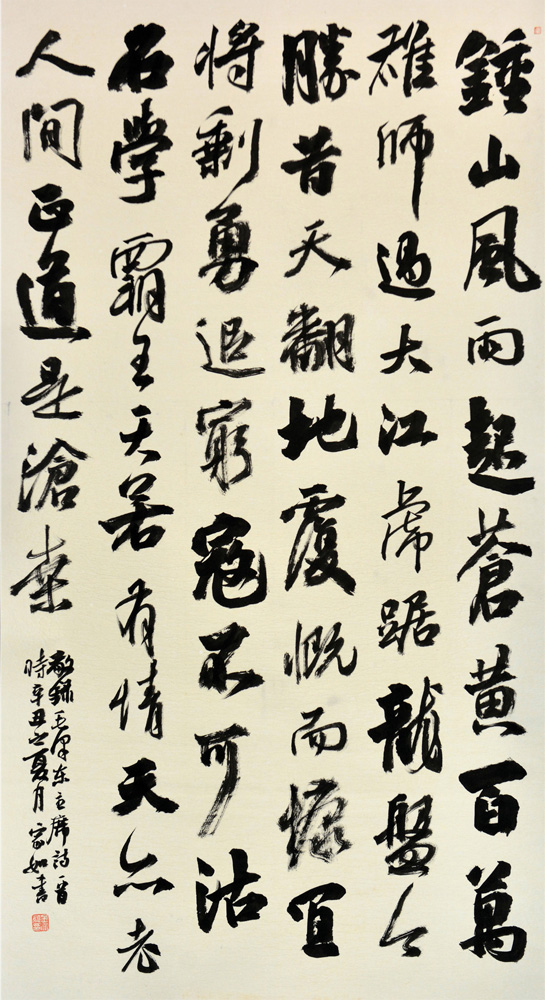 鍾山風雨起蒼黄百萬
雄師過大江虎踞龍盤今
勝昔天翻地覆慨而慷宜
將剩勇追窮寇不可沽
名學霸王天若有情天亦老
人間正道是滄桑
敬録毛澤东主席詩一首
時辛丑之夏月家如書